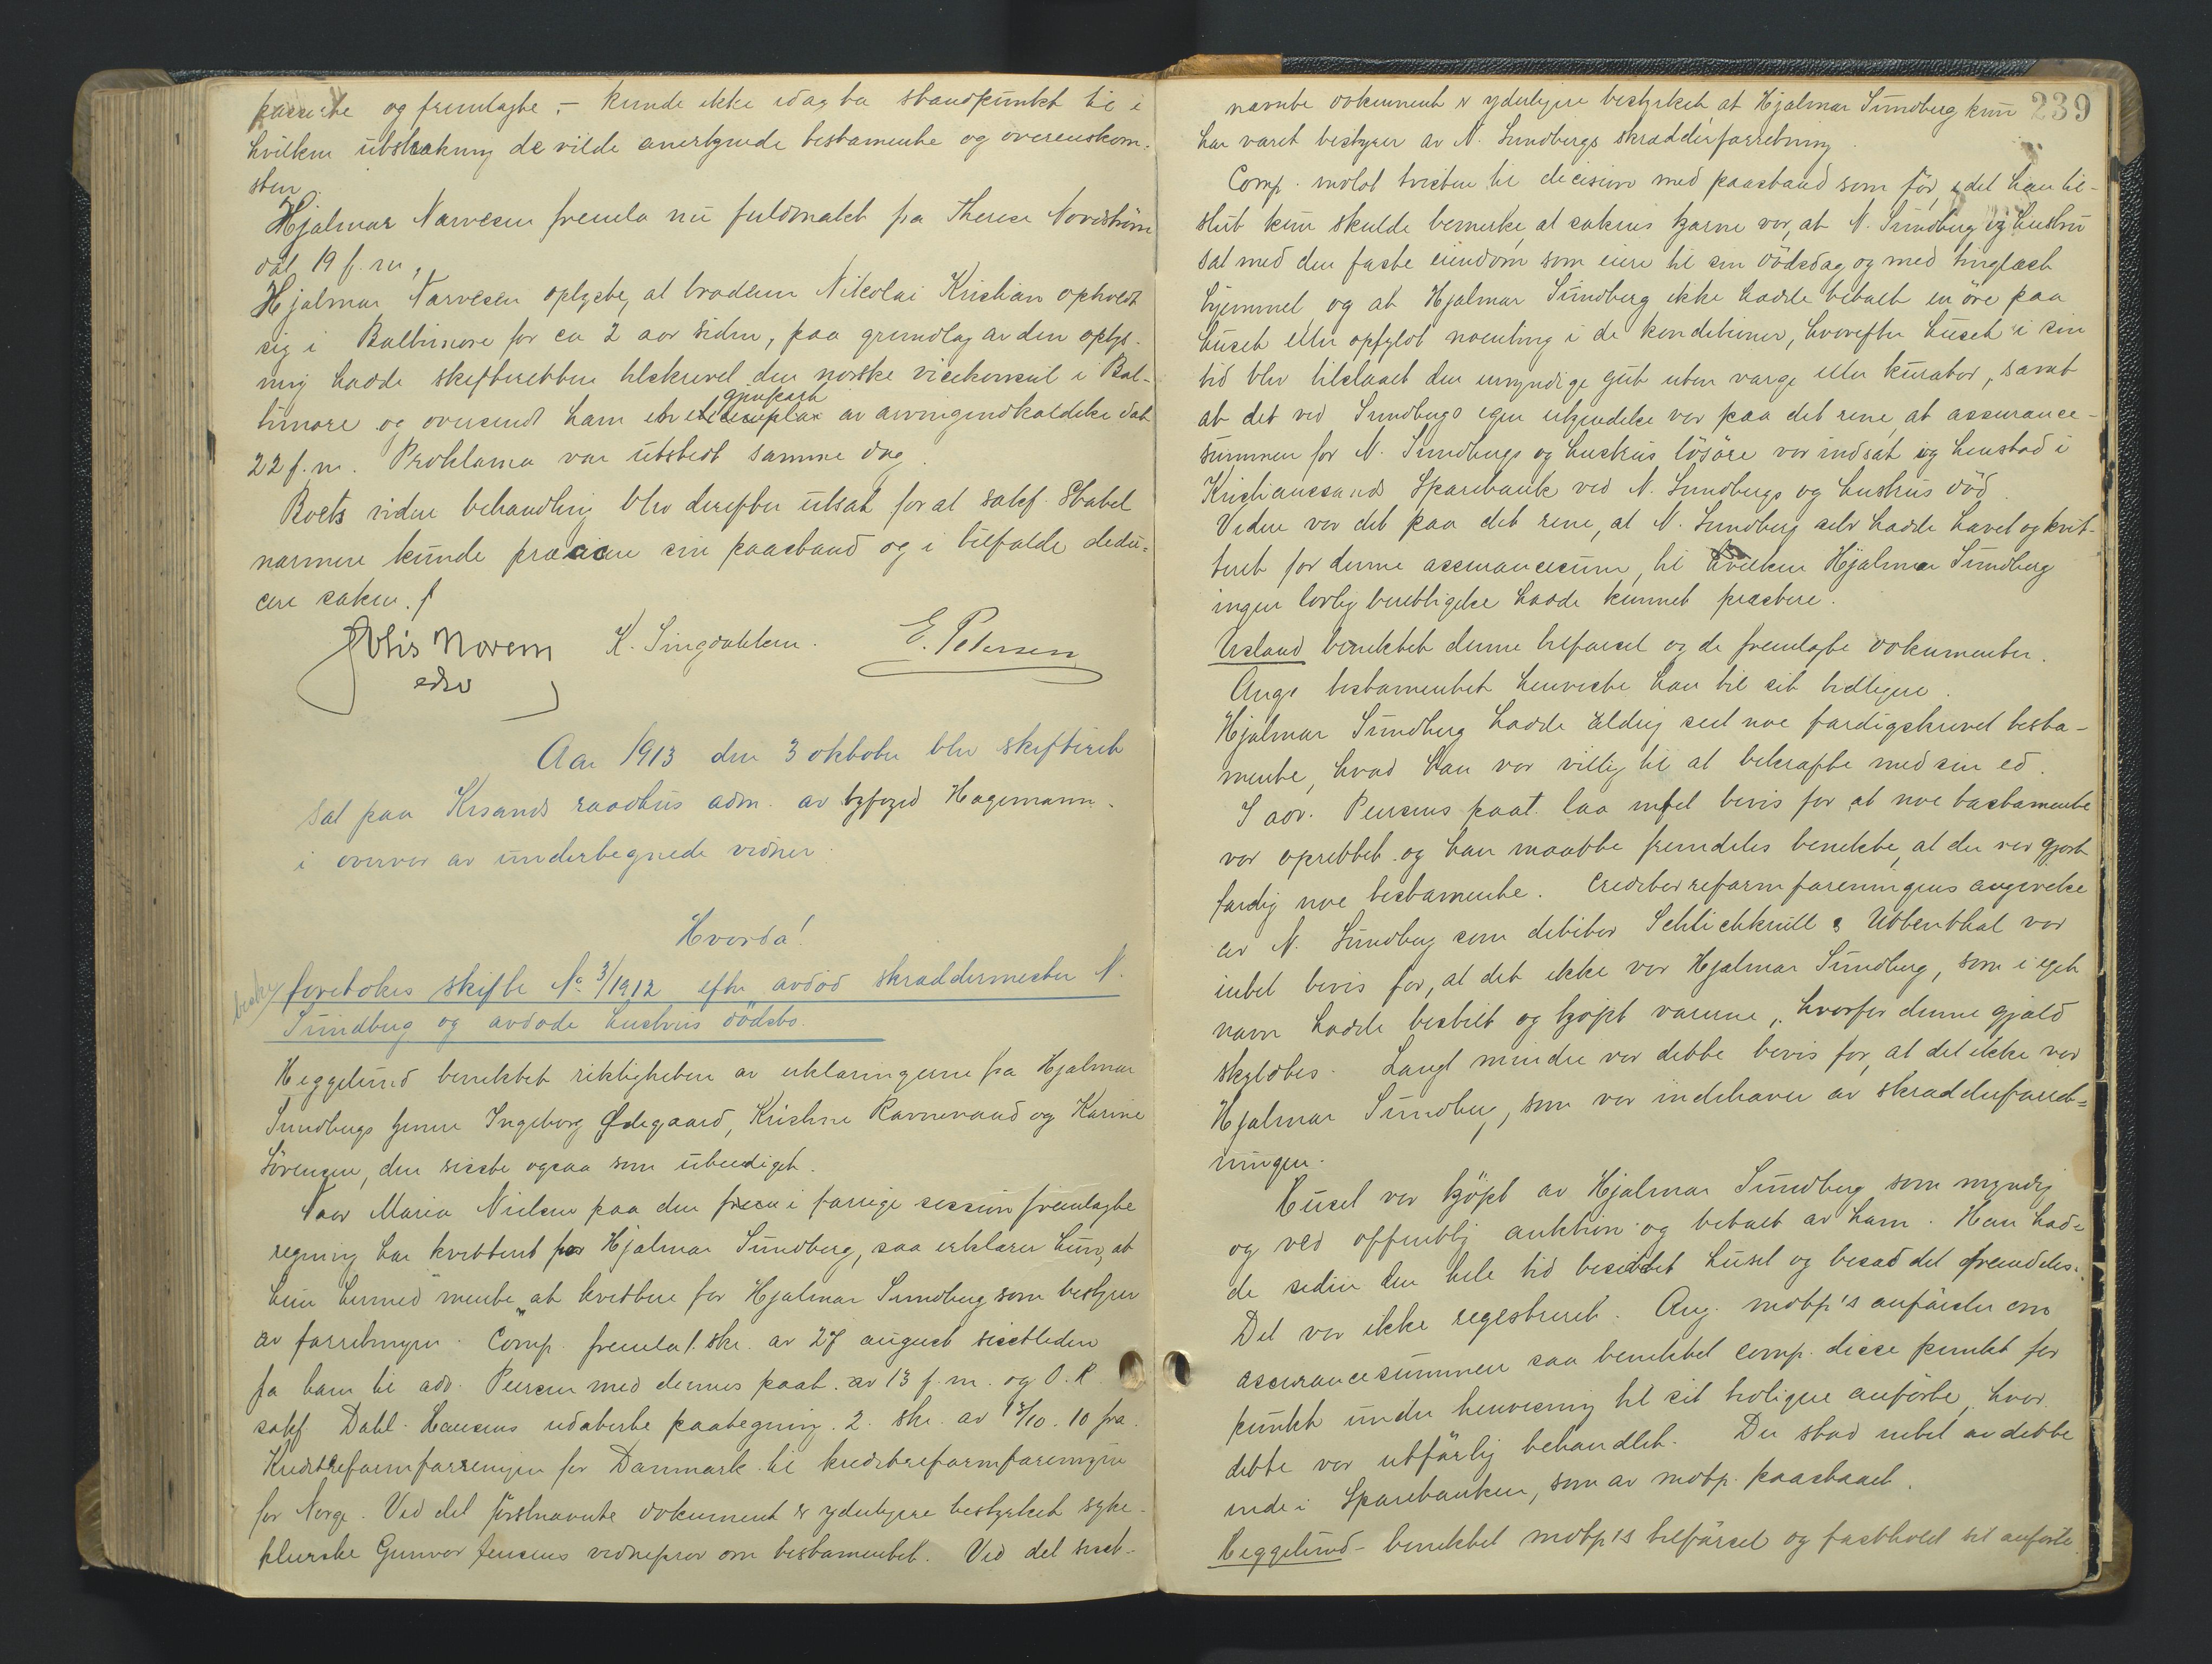 passerte og fremlagte, - kunde ikke idag ta standpunkt til i
hvilken utstrækning de vilde anerkjende testamente og overenskom-
sten.
Hjalmar Narvesen fremla nu fuldmakt fra Therese Nordstrøm
dat 19 f.m.,
Hjalmar Narvesen oplyste, at broderen Nikolai Kristian opholdt
sig i Baltimore for ca 2 aar siden, paa grundlag av den oplys-
ning hadde skifteretten tilskrevet den norske vicekonsul i Bal-
timore og oversendt ham et gjenpart av arvingindkaldelse dat
22 f.m. Proklama var utstedt samme dag.
Boets videre behandling blev derefter utsat for at sakf. Stabel
nærmere kunde præcisere sin paastand og i tilfælde dedu-
cere saken.
Nis Norem K. Singdahlsen. E. Petersen
edsv
Aar 1913 den 3 oktober blev skifteret
sat paa Krsands raadhus adm. av byfoged Hagemann.
i overvær av undertegnede vidner.
Hvorda!
besky foretokes skifte No 3/1912 efter avdød skræddermester N.
Sundberg og avdøde hustrus dødsbo.
Heggelund benektet riktigheten av erklæringerne fra Hjalmar
Sundbergs hjem Ingeborg Ødegaard, Kristine Ravnevand og Karine
Sörensen, den sisste ogsaa som ubeediget.
Naar Maria Nielsen paa den i forrige session fremlagte
regning har kvittert for Hjalmar Sundberg, saa erklærer hun, at
hun hermed mente "at kvittere for Hjalmar Sundberg som bestyrer
av forretningen. Comp. fremla 1. skr. av 27 august sisstleden
fra ham til adv. Peersen med dennes paat. av 13 f.m. og O.R.
sakf. Dahl-Hansens udaterte paategning. 2. skr. av 13/10-10 fra
Kreditreformforeningen for Danmark til kreditreformforeningen
for Norge. Ved det førstnævnte dokument er yderligere bestyrket syke-
pleierske Gunvor Jensens vidneprov om testamentet. Ved det sisst-
239
nævnte dokument er yderligere bestyrket at Hjalmar Sundberg kun
har været bestyrer av N. Sundbergs skrædderforretning.
Comp. indlot tvisten til decision med paastand som før, idet han til-
slut kun skulde bemerke, at sakens kjærne var, at N. Sundberg og hustru
sat med den faste eiendom som eiere til sin dödsdag og med tinglæst
hjemmel og at Hjalmar Sundberg ikke hadde betalt en øre paa
huset eller opfyldt noenting i de konditioner, hvorefter huset i sin
tid blev tilslaaet den umyndige gut uten værge eller kurator, samt
at det ved Sundbergs egen erkjendelse var paa det rene, at assurance-
summen for N. Sundbergs og hustrus lösöre var indsat og henstod i
Kristianssands Sparebank ved N. Sundbergs og hustrus död.
Videre var det paa det rene, at N. Sundberg selv hadde hævet og kvit-
teret for denne assurancesum, til hvilken Hjalmar Sundberg
ingen lovlig berettigelse hadde kunnet præstere.
Usland benektet denne tilførsel og de fremlagte dokumenter.
Ang. testamentet henviste han til sit tidligere.
Hjalmar Sundberg hadde aldrig set noe færdigskrevet testa-
mente, hvad han var villig til at bekræfte med sin ed.
I adv. Peersens paat. laa intet bevis for at noe testamente
var oprettet og han maatte fremdeles benekte, at der var gjort
færdig noe testamente. Creditorreformforeningens angivelse
av N. Sundberg som debitor Schlichkrull & Ubbenthal var
intet bevis for, at det ikke var Hjalmar Sundberg, som i eget
navn hadde bestilt og kjøpt varerne, hvorfor denne gjæld
skyldtes. Langt mindre var dette bevis for, at det ikke var
Hjalmar Sundberg, som var indehaver av skrædderforret-
ningen.
Huset var kjøpt av Hjalmar Sundberg som myndig
og ved offentlig auktion og betalt av ham. Han had-
de siden den hele tid besiddet huset og besad det fremdeles.
Det var ikke registreret. Ang. motp's anførsler om
assurancesummen saa benektet comp. disse punkt for
punkt under henvisning til sit tidligere anførte, hvor
dette var utførlig behandlet. Der stod intet av dette
inde i Sparebanken, som av motp. paastaaet.
Heggelund - benektet motp's tilførsel og fastholdt sit anførte